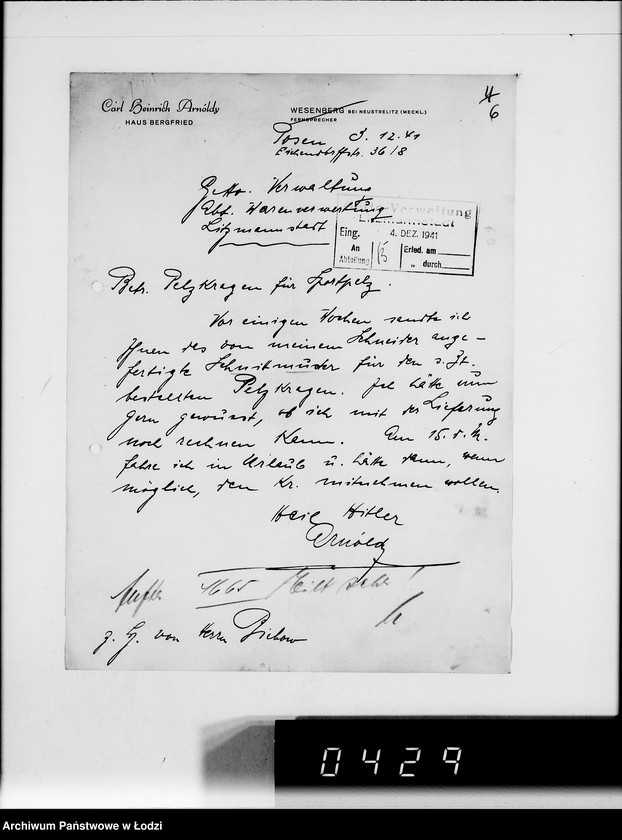 4/6
Carl Heinrich Arnöldy
HAUS BERGFRIED
WESENBERG BEI NEUSTRELITZ (MECKL.)
FERNSPRECHER
Posen 3.12.41
Eichendorffstr. 36/8
Getto-Verwaltung
Abt. Warenverwertung
Litzmannstadt
Verwaltung
Litzmannstadt
Eing. 4. DEZ. 1941
An
Abteilung
Erled. am
" durch
Betr. Pelzkragen für Sportpelz.
Vor einigen Wochen sandte ich
Ihnen das von meinem Schneider ange-
fertigte Schnittmuster für den s. Zt.
bestellten Pelzkragen. Ich hätte nun
gern gewusst, ob ich mit der Lieferung
noch rechnen kann. Am 15. d. M.
fahre ich in Urlaub u. hätte dann, wenn
möglich, den Kr. mitnehmen wollen.
Heil Hitler
Arnöldy
1665 Eilt sehr!
z. Hd. von Herrn Biebow
0429
Archiwum Państwowe w Łodzi